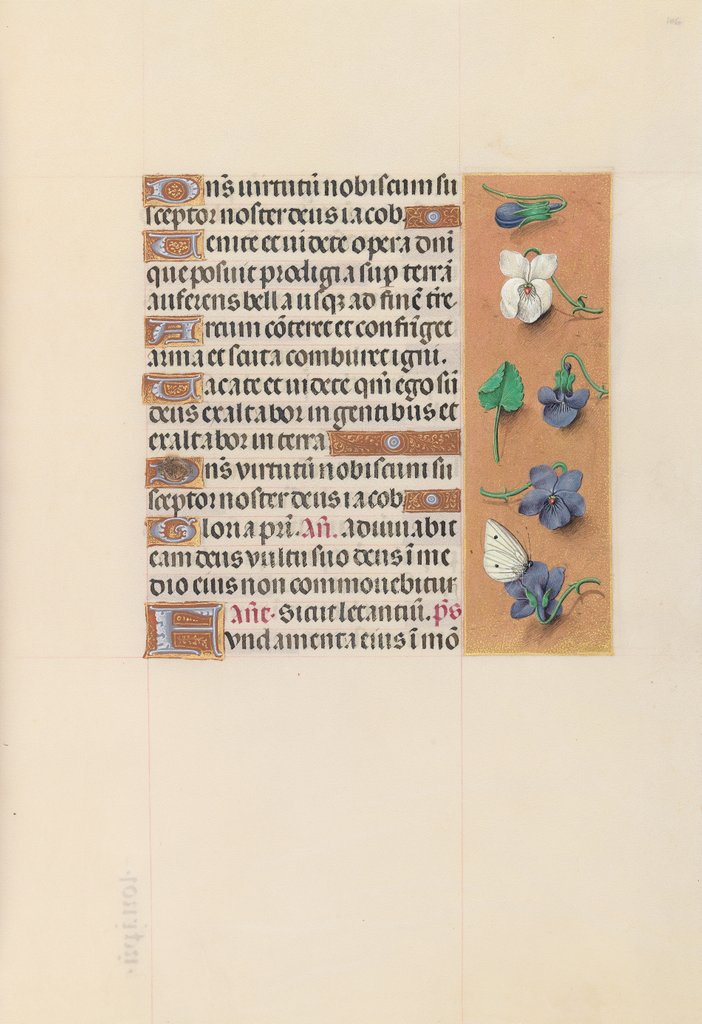 Dn̄s uirtutū nobiscum su
sceptor noster deus iacob
Uenite et uidete opera dn̄i
que posuit prodigia sup terrā
auferens bella usqꝫ ad finē tre
Arcum cōteret et confringet
arma et scuta comburet igni.
Uacate et uidete qm̄ ego sū
deus exaltabor in gentibus et
exaltabor in terra
Dn̄s virtutū nobiscum su
sceptor noster deus iacob
Gloria pri. An̄. adiuuabit
eam deus vultu suo deus ī me
dio eius non commouebitur
An̄e. Sicut letantiū. ps̄
Fvndamenta eius ī mō
106